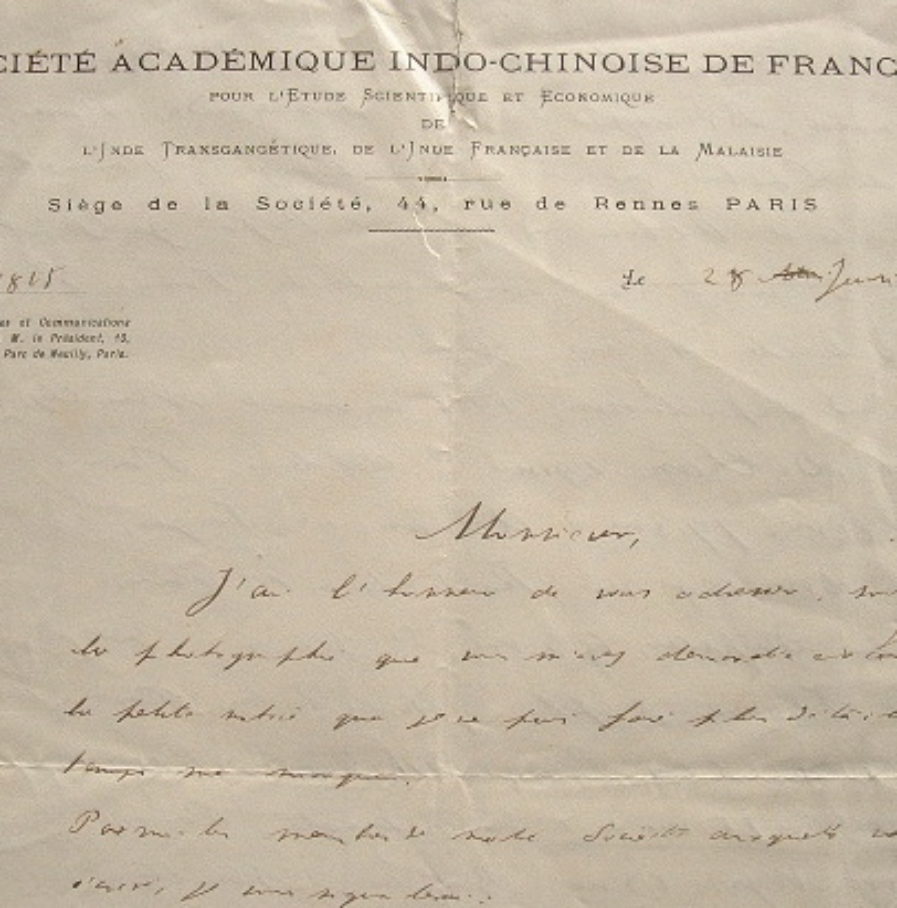 CIÉTÉ ACADÉMIQUE INDO-CHINOISE DE FRANC
POUR L'ETUDE SCIENTIFIQUE ET ECONOMIQUE
DE
L'INDE TRANSGANGÉTIQUE, DE L'INDE FRANÇAISE ET DE LA MALAISIE
Siège de la Société, 44, rue de Rennes PARIS
Le 28
et Communications
M. le Président, 13,
Parc de Neuilly, Paris.
Monsieur,
J'ai l'honneur de vous adresser,
la photographie que vous m'avez demandée
la petite notice que je ne puis faire plus
temps me manque.
Parmi les membres de notre Société auxquels
je vous signalerai